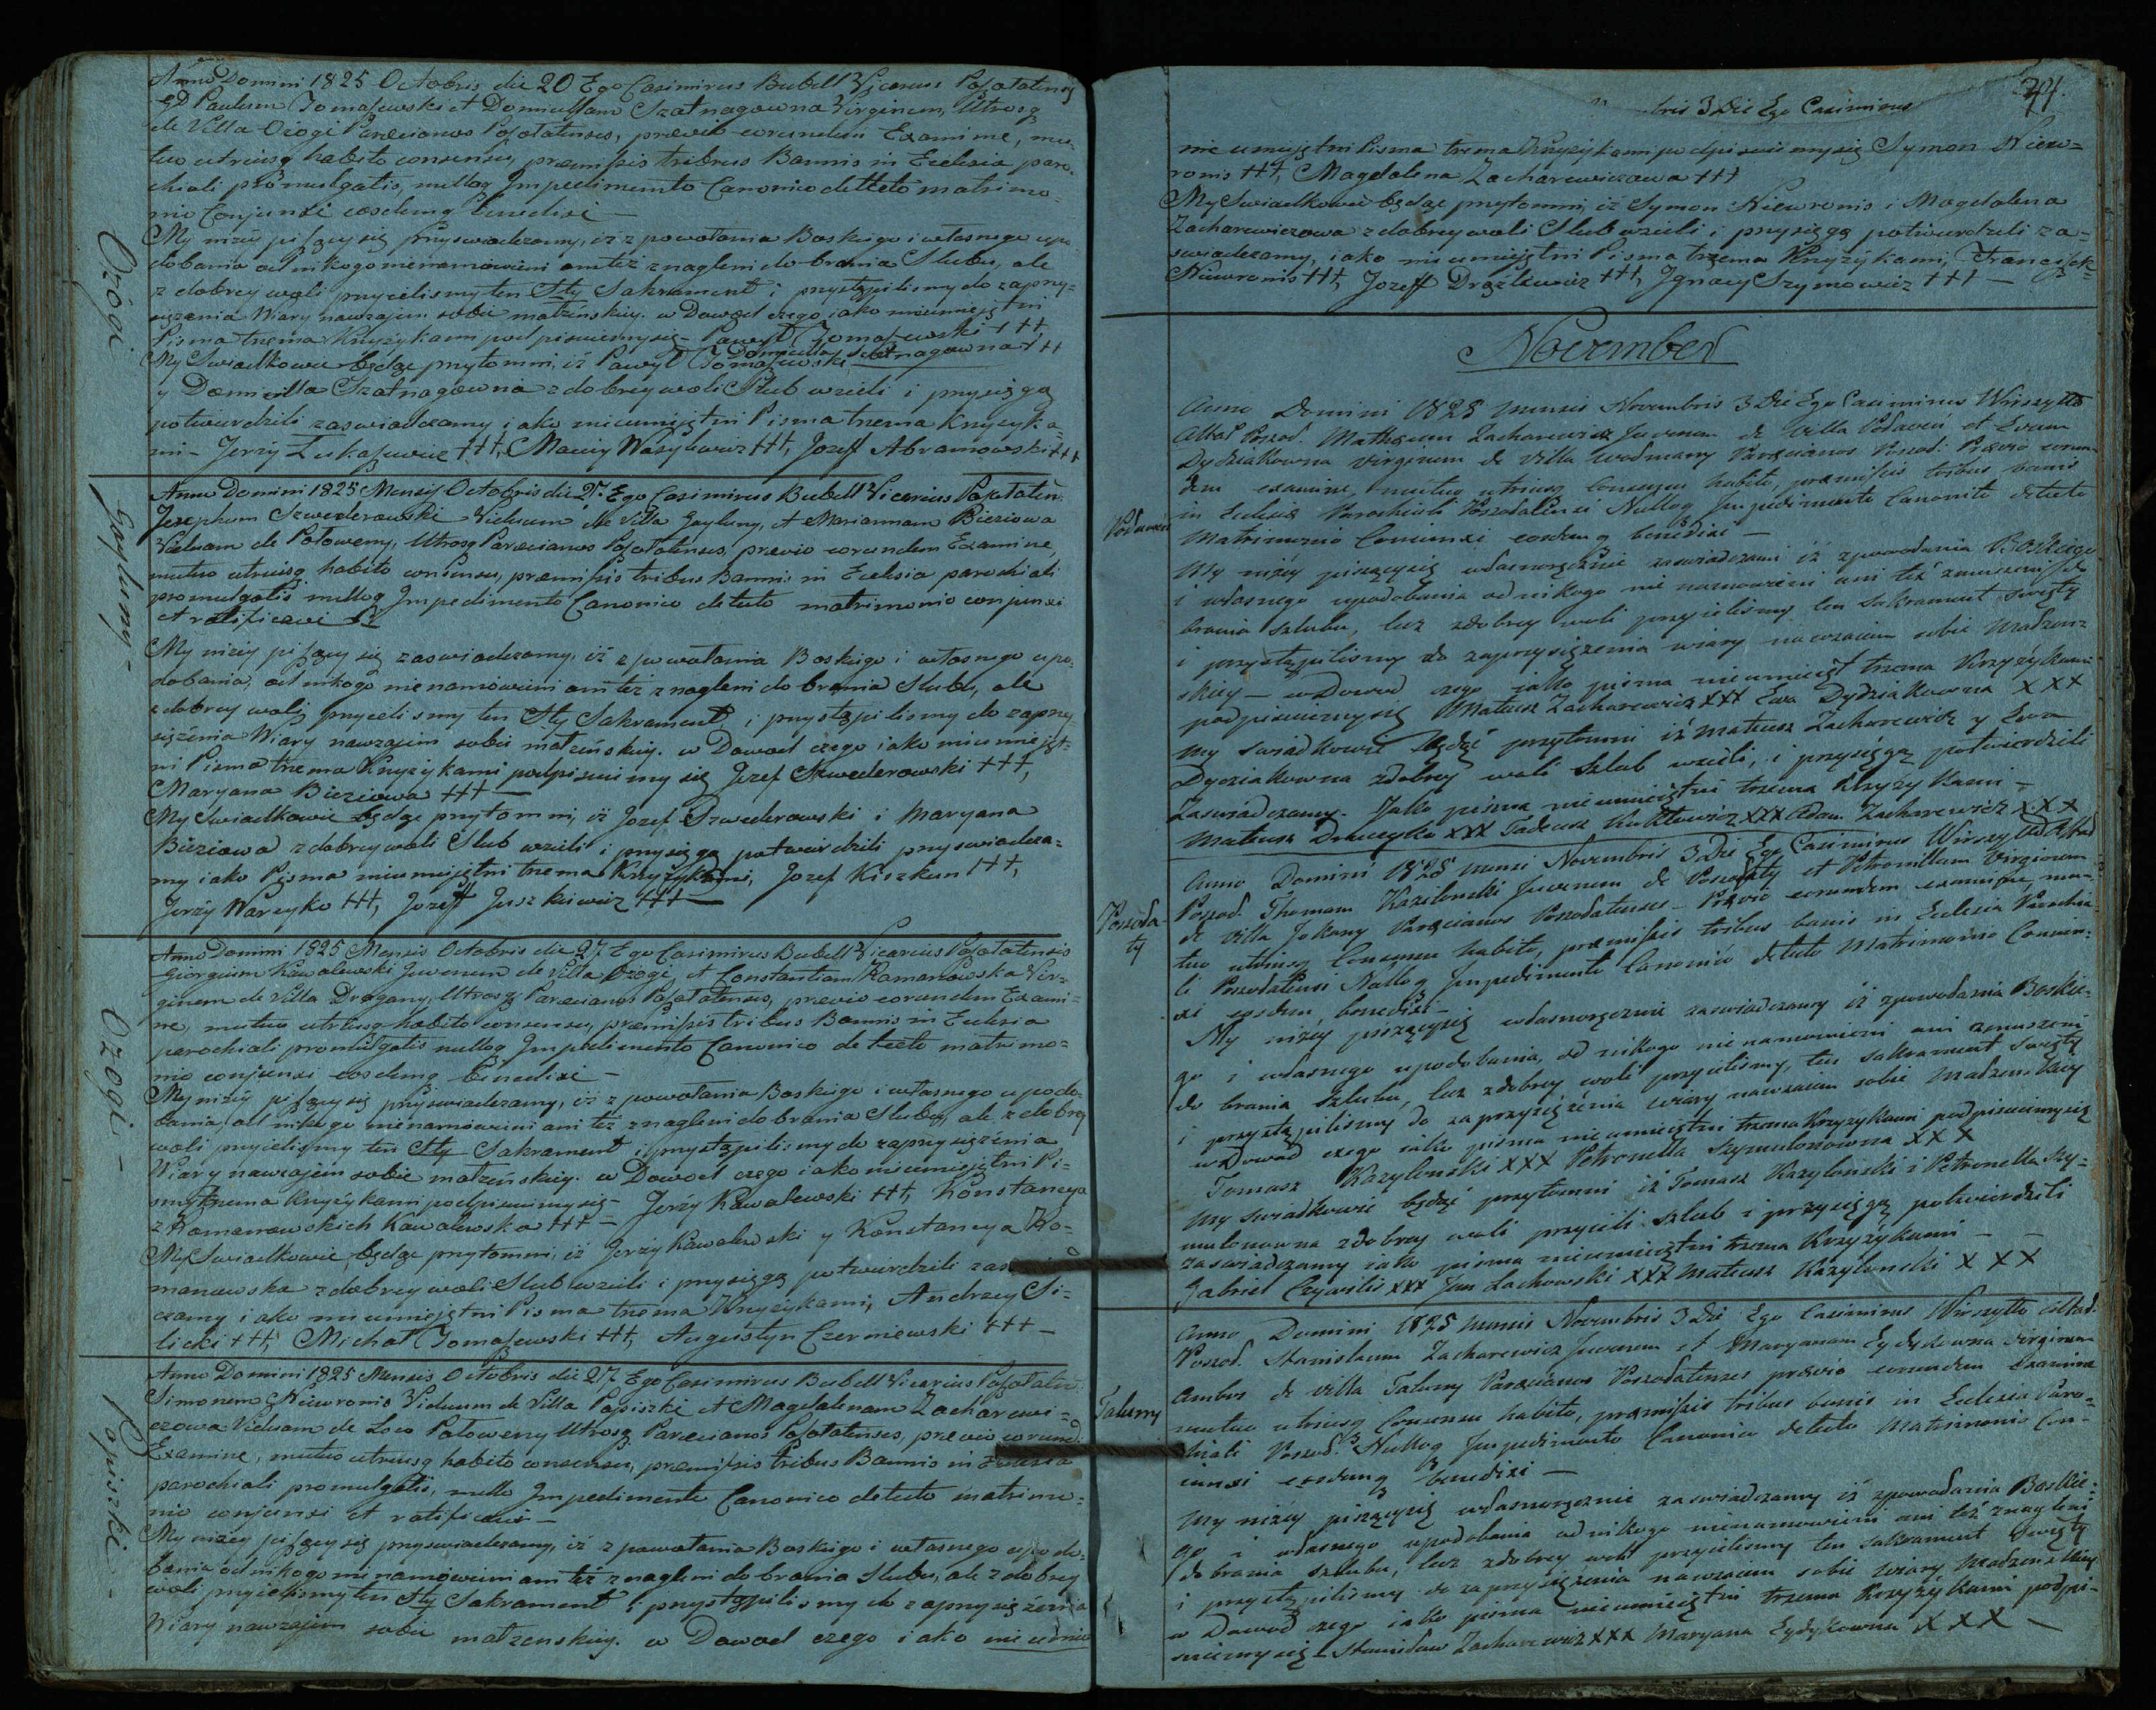 Anno Domini 1825 Octobris die 20 Ego Casimirus Bubell Vicarius Posolatensis
Paulum Tomaszewski et Domicellam Szatnagowna Virginem, Utrosq
de Villa Ożogi Parœcianos Posolatenses, prævio eorundem Examine, mu-
tuo utriusq habito consensu, præmissis tribus Bannis in Ecclesia paro-
chiali promulgatis, nulloq Impedimento Canonico detecto matrimo-
nio Conjunxi eosdemq Benedixi —
Ożogi
My niżej piszący się przyswiadczamy, iż z powołania Boskiego i własnego upo-
dobania od nikogo nienamówieni ani też znagleni do brania Slubu, ale
z dobrey woli przyielismy ten Sty Sakrament i przystąpilismy do zaprzy-
siężenia Wiary nawzajem sobie małżeńskiey. w Dowod czego iako nieumiejętni
Pisma trzema Krzyżykami podpisuiemy się — Paweł Tomaszewski +++,
Domicella Szatnagowna +++
My Swiadkowie będąc przytomni, iż Paweł Tomaszewski
y Domicella Szatnagowna z dobrey woli Slub wzieli i przysięgą
potwierdzili zaswiadczamy iako nieumiejętni Pisma trzema Krzyżyka-
mi — Jerży Łukaszewicz +++, Maciey Wasylewicz +++, Jozeff Abramowski +++
Gayluny —
Anno Domini 1825 Mensis Octobris die 27. Ego Casimirus Bubell Vicarius Posolaten.
Josephum Szwederowski Viduum de Villa Gayluny, et Mariannam Bieziowa
Viduam de Potoweny, Utrosq Parœcianos Posolatenses, prævio eorundem Examine,
mutuo utriusq habito consensu, præmissis tribus Bannis in Ecclesia parochiali
promulgatis nulloq Impedimento Canonico detecto matrimonio conjunxi
et ratificavi
My niżey piszący się zaswiadczamy, iż z powołania Boskiego i własnego upo-
dobania, od nikogo nienamówieni ani też znagleni do brania Slubu, ale
z dobrey woli przyielismy ten Sty Sakrament, i przystąpilismy do zaprzy-
siężenia Wiary nawzajem sobie małżeńskiey. w Dowod czego iako nieumiejęt-
ni Pisma trzema Krzyżykami podpisuiemy się Jozef Szwederowski +++,
Maryana Bieziowa +++ —
My Swiadkowie będąc przytomni, iż Jozef Szwederowski i Maryana
Bieziowa z dobrey woli Slub wzieli i przysięgą potwierdzili przyswiadcza-
my iako Pisma nieumiejętni trzema Krzyżykami, Jozef Kiszkun +++,
Jerży Wareyko +++, Jozeff Juszkiewicz +++ —
Ożogi —
Anno Domini 1825 Mensis Octobris die 27 Ego Casimirus Bubell Vicarius Posolatensis
Giorgium Kawalewski Juvenem de Villa Ożogi, et Constantiam Romanowska Vir-
ginem de Villa Dragany, Utrosq Parœcianos Posolatenses, prævio eorundem Exami-
ne, mutuo utriusq habito consensu, præmissis tribus Bannis in Ecclesia
parochiali promulgatis nulloq Impedimento Canonico detecto matrimo-
nio conjunxi eosdemq benedixi —
My niżey piszący się przyswiadczamy, iż z powołania Boskiego i własnego upodo-
bania, od nikogo nienamówieni ani też znagleni do brania Slubu, ale z dobrey
woli przyielismy ten Sty Sakrament i przystąpilismy do zaprzysiężenia
Wiary nawzajem sobie małżeńskiey. w Dowod czego iako nieumiejętni Pi-
sma trzema Krzyżykami podpisuiemy się — Jerży Kawalewski +++, Konstancya
z Romanowskich Kawalewska +++ —
My Swiadkowie będąc przytomni, iż Jerży Kawalewski y Konstancya Ro-
manowska z dobrey woli Slub wzieli i przysięgą potwierdzili zas
czamy iako nieumiejętni Pisma trzema Krzyżykami, Andrzey Si-
licki +++, Michał Tomaszewski +++, Augustyn Czerniewski +++ —
Popiszki —
Anno Domini 1825 Mensis Octobris die 27 Ego Casimirus Bubell Vicarius Posolaten.
Simonem Niewronis Viduum de Villa Popiszki et Magdalenam Zacharewi-
czowa Viduam de Loco Potoweny Utrosq Parœcianos Posolatenses, prævio eorund.
Examine, mutuo utriusq habito consensu, præmissis tribus Bannis in Ecclesia
parochiali promulgatis, nullo Impedimento Canonico detecto matrimo-
nio conjunxi et ratificavi —
My niżey piszący się przyswiadczamy, iż z powołania Boskiego i własnego upodo-
bania od nikogo nienamówieni ani też znagleni do brania Slubu, ale z dobrey
woli przyielismy ten Sty Sakrament i przystąpilismy do zaprzysiężenia
Wiary nawzajem sobie małżenskiey. w Dowod czego iako nieumie
bris 3 Die Ego Casimirus
74.
nie umiejętni Pisma trzema Krzyżykami podpisuiemy się Symon Niew-
ronis +++, Magdalena Zacharewiczowa +++
My Swiadkowie będąc przytomni, iż Symon Niewronis i Magdalena
Zacharewiczowa z dobrey woli Slub wzieli i przysięgą potwierdzili za-
swiadczamy, iako nieumiejętni Pisma trzema Krzyżykami, Franciszek
Niewronis +++, Jozeff Drążkiewicz +++, Jgnacy Szymowicz +++ —
November
Anno Domini 1825 mensis Novembris 3 Die Ego Casimirus Wirszyłło
Altar. Poszod. Mathæum Zacharewicz Juvenem de Villa Podawcń et Evam
Dydziakowna virginem de Villa wodmany Parœcianos Poszod: Prævio eorun-
dem examine, mutuo utriusq Consensu habito, præmissis tribus banis
in Ecclesia Parochiali Poszodaliensi Nulloq Impedimento Canonico detecto
Matrimonio Coniunxi eosdemq benedixi —
My niżey piszącysię własnoręcznie zaswiadczamy iż zpowodania Boskiego
i własnego upodobania od nikogo nie namowieni ani też zmuszeni do
brania szlubu, lecz zdobrey woli przyielismy ten Sakrament swięty
i przystąpilismy do zaprzysiężenia wiary nawzaiem sobie Madzen-
skiey — w Dowod czego jako pisma nieumieięt trzema Krzyżykami
podpisuiemysię Mateusz Zacharewicz XXX Ewa Dydziakowna XXX
My swiadkowie będąć przytomni iż Mateusz Zacharewicz y Ewa
Dydziakowna zdobrey woli szlub wzieli, i przysięgą potwierdzili
Zaswiadczamy. Jako pisma nieumieiętni trzema Krzyżykami —
Mateusz XXX Tadeusz XXX Adam Zacharewicz XXX
Poszoda-
ty
Anno Domini 1825 Mensi Novembris 3 Die Ego Casimirus Wirszyłło Altar
Poszod. Thomam Kazilonski Juvenem de Poszodaty et Petronillam virginem
de Villa Jokany Parœcianos Poszodatenses — Prævio eorundem examine, mu-
tuo utriusq Consensu habito, præmissis tribus banis in Ecclesia Parochia-
li Poszodatensi Nulloq Impedimento Canonico detecto Matrimonio Coniun-
xi eosdem, benedixi —
My niżey piszącysię własnoręcznie zaswiadczamy iż zpowodania Boskie-
go i własnego upodobania, od nikogo nienamowieni ani zmuszeni
do brania szlubu, lecz zdobrey woli przyielismy, ten sakrament swięty
i przystąpilismy do zaprzysiężenia wiary nawzaiem sobie Madzenskiey
w Dowod czego iako pisma nieumieiętni trzema Krzyżykami podpisuiemysię
Tomasz Kazylonski XXX Petronella Szymulonowna XXX
My swiadkowie będąć przytomni iż Tomasz Kazylonski i Petronella Szy-
mulonowna zdobrey woli przyieli szlub i przysięgą potwierdzili
zaswiadczamy iako pisma nieumieiętni trzema Krzyżykami —
Gabriel XXX Jan Lachowski XXX Mateusz Kazylonski XXX
Talumy
Anno Domini 1825 Mensis Novembris 3 Die Ego Casimirus Wirszyłło Altar.
Poszod. Stanislaum Zacharewicz Juvenem et Maryanam Eydykowna virginem
Ambos de Villa Talumy Parœcianos Poszodatenses prævio eorundem Examine
mutuo utriusq Consensu habito, præmissis tribus banis in Ecclesia Paro-
chiali Poszod. Nulloq Impedimento Canonico detecto Matrimonio Con-
iunxi eosdemq benedixi —
My niżey piszącysię własnoręcznie zaswiadczamy iż zpowodania Boskie-
go i własnego upodobania od nikogo nienamowieni ani też znagleni
do brania szlubu, lecz zdobrey woli przyielismy ten sakrament swięty
i przystąpilismy do zaprzysiężenia nawzaiem sobie wiary Madzenskiey
w Dowod czego iako pisma nieumieiętni trzema Krzyżykami podpi-
suiemysię — Stanisław Zacharewicz XXX Maryana Eydykowna XXX —